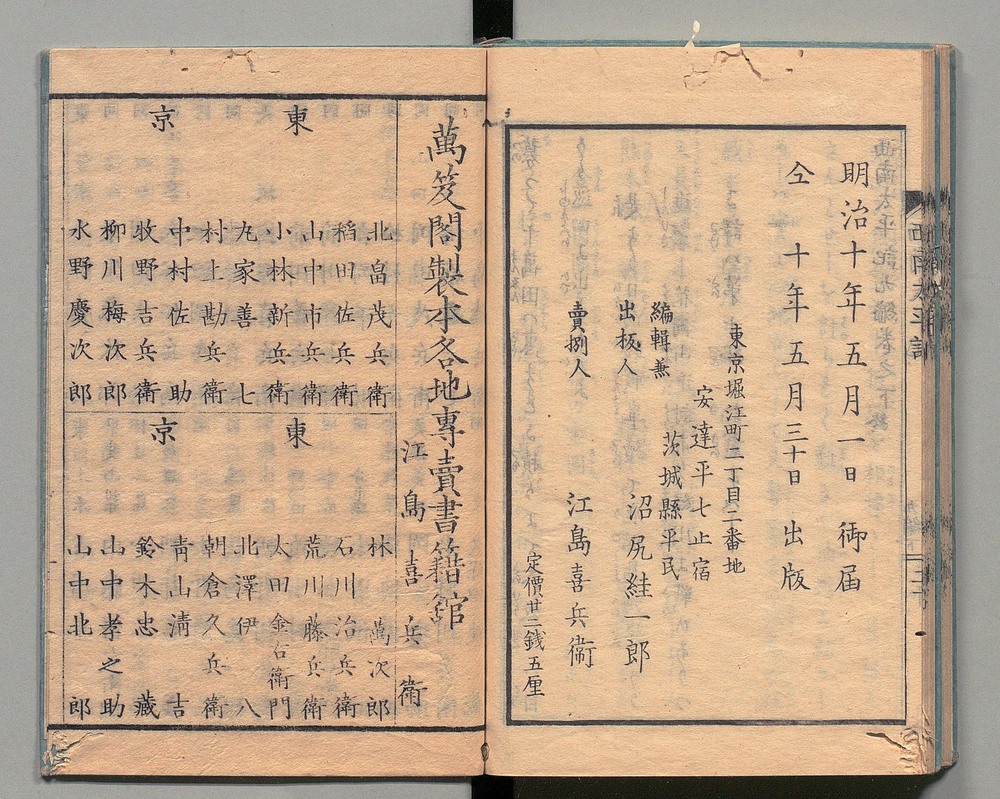 明治十年五月一日　御届
仝　十年五月三十日　出版
東京堀江町二丁目二番地
安達平七止宿
茨城縣平民
編輯兼
出板人　沼尻絓一郎
賣捌人　江島喜兵衛
定價廿二錢五厘
西南太平記
萬笈閣製本各地專賣書籍舘
江島喜兵衛
東京
北畠茂兵衛
稻田佐兵衛
山中市兵衛
小林新兵衛
丸家善七
村上勘兵衛
中村佐助
牧野吉兵衛
柳川梅次郎
水野慶次郎
東京
林萬次郎
石川治兵衛
荒川藤兵衛
太田金右衛門
北澤伊八
朝倉久兵衛
青山淸吉
鈴木忠藏
山中孝之助
山中北郎